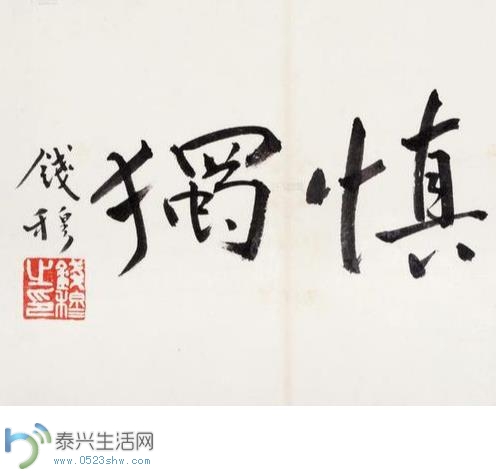 慎獨
錢穆
錢穆之印
泰兴生活网
www.0523shw.com